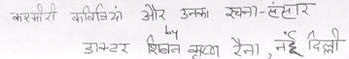 कश्मीरी कवित्रियां और उनका रचना-संसार
by
डाक्टर शिबन कृष्ण रैना, नई दिल्ली